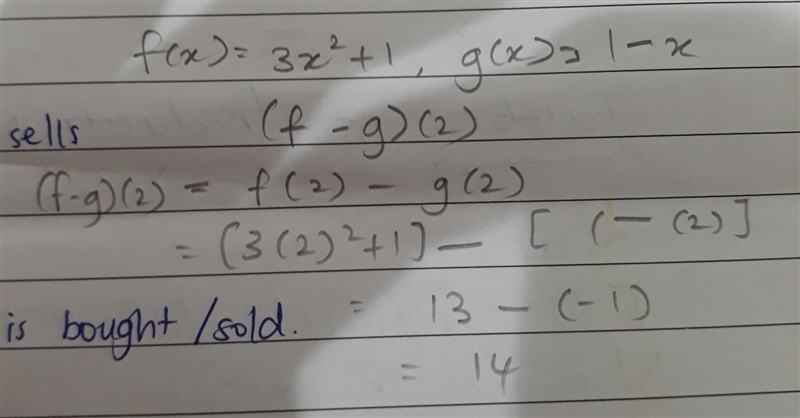 f(x) = 3x²+1, g(x) = 1-x
sells (f-g)(2)
(f-g)(2) = f(2) - g(2)
= [3(2)²+1] - [1-(2)]
is bought/sold. = 13 - (-1)
= 14